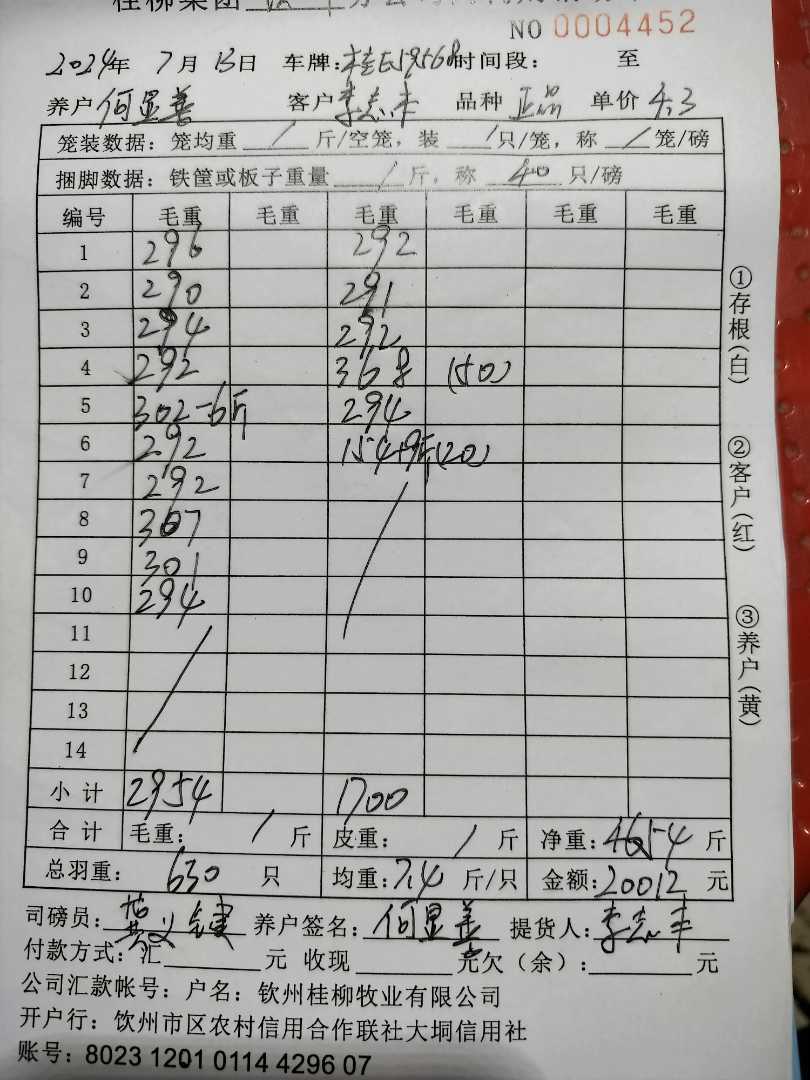 桂柳集团
NO 0004452
2024年 7月 13日 车牌: 时间段: 至
养户 何显善 客户 李志丰 品种 正品 单价 4.3
笼装数据: 笼均重 / 斤/空笼, 装 / 只/笼, 称 / 笼/磅
捆脚数据: 铁筐或板子重量 / 斤, 称 40 只/磅
编号 毛重 毛重 毛重 毛重 毛重 毛重
1 296 292
2 290 291
3 294 292
4 292 368 (50)
5 302-6斤 294
6 292 154+9斤(20)
7 292
8 307
9 301
10 294
11
12
13
14
小计 2954 1700
合计 毛重: / 斤 皮重: / 斤 净重: 4654 斤
总羽重: 630 只 均重: 7.4 斤/只 金额: 20012 元
司磅员: 黄义健 养户签名: 何显善 提货人: 李志丰
付款方式: 汇 元 收现 元欠(余): 元
公司汇款帐号: 户名: 钦州桂柳牧业有限公司
开户行: 钦州市区农村信用合作联社大垌信用社
账号: 8023 1201 0114 4296 07
①存根(白)
②客户(红)
③养户(黄)